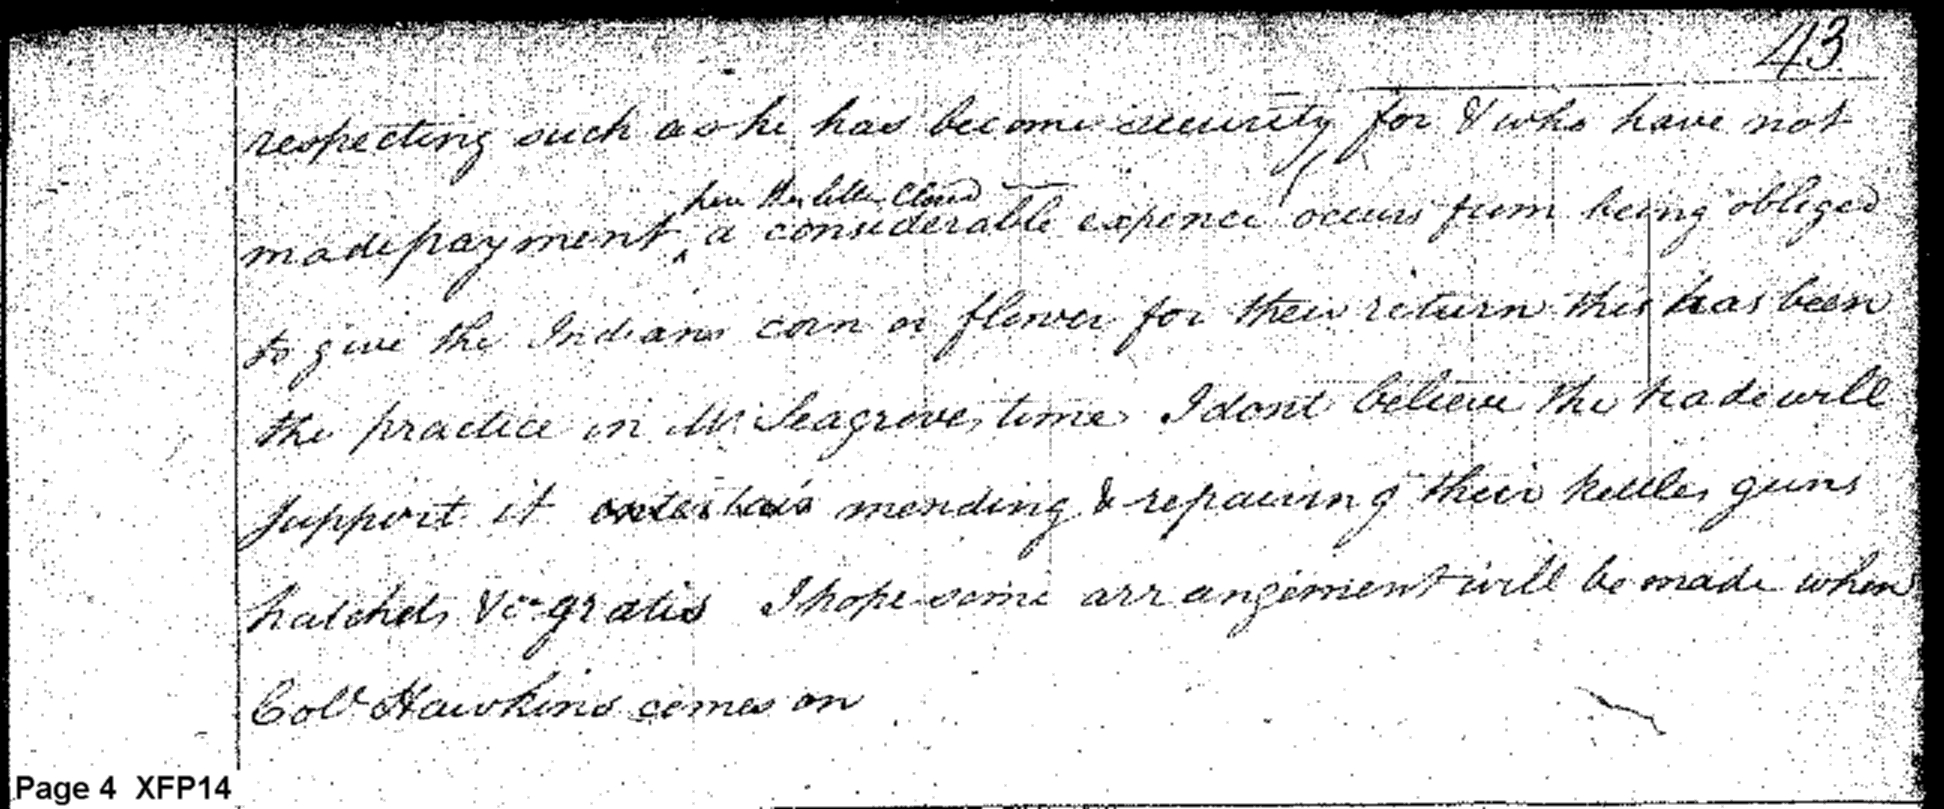 43
respecting such as he has become security for & who have not
made payment a considerable expence occurs from being obliged
to give the Indians corn or flower for their return this has been
the practice in Mr. Seagroves time I dont believe the trade will
support it mending & repairing their kettles guns
hatchets &c gratis I hope some arrangement will be made when
Colo. Hawkins comes on
Page 4 XFP14